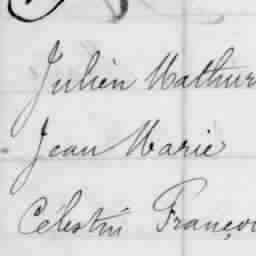 Julien Mathur
Jean Marie
Célestin Françoi